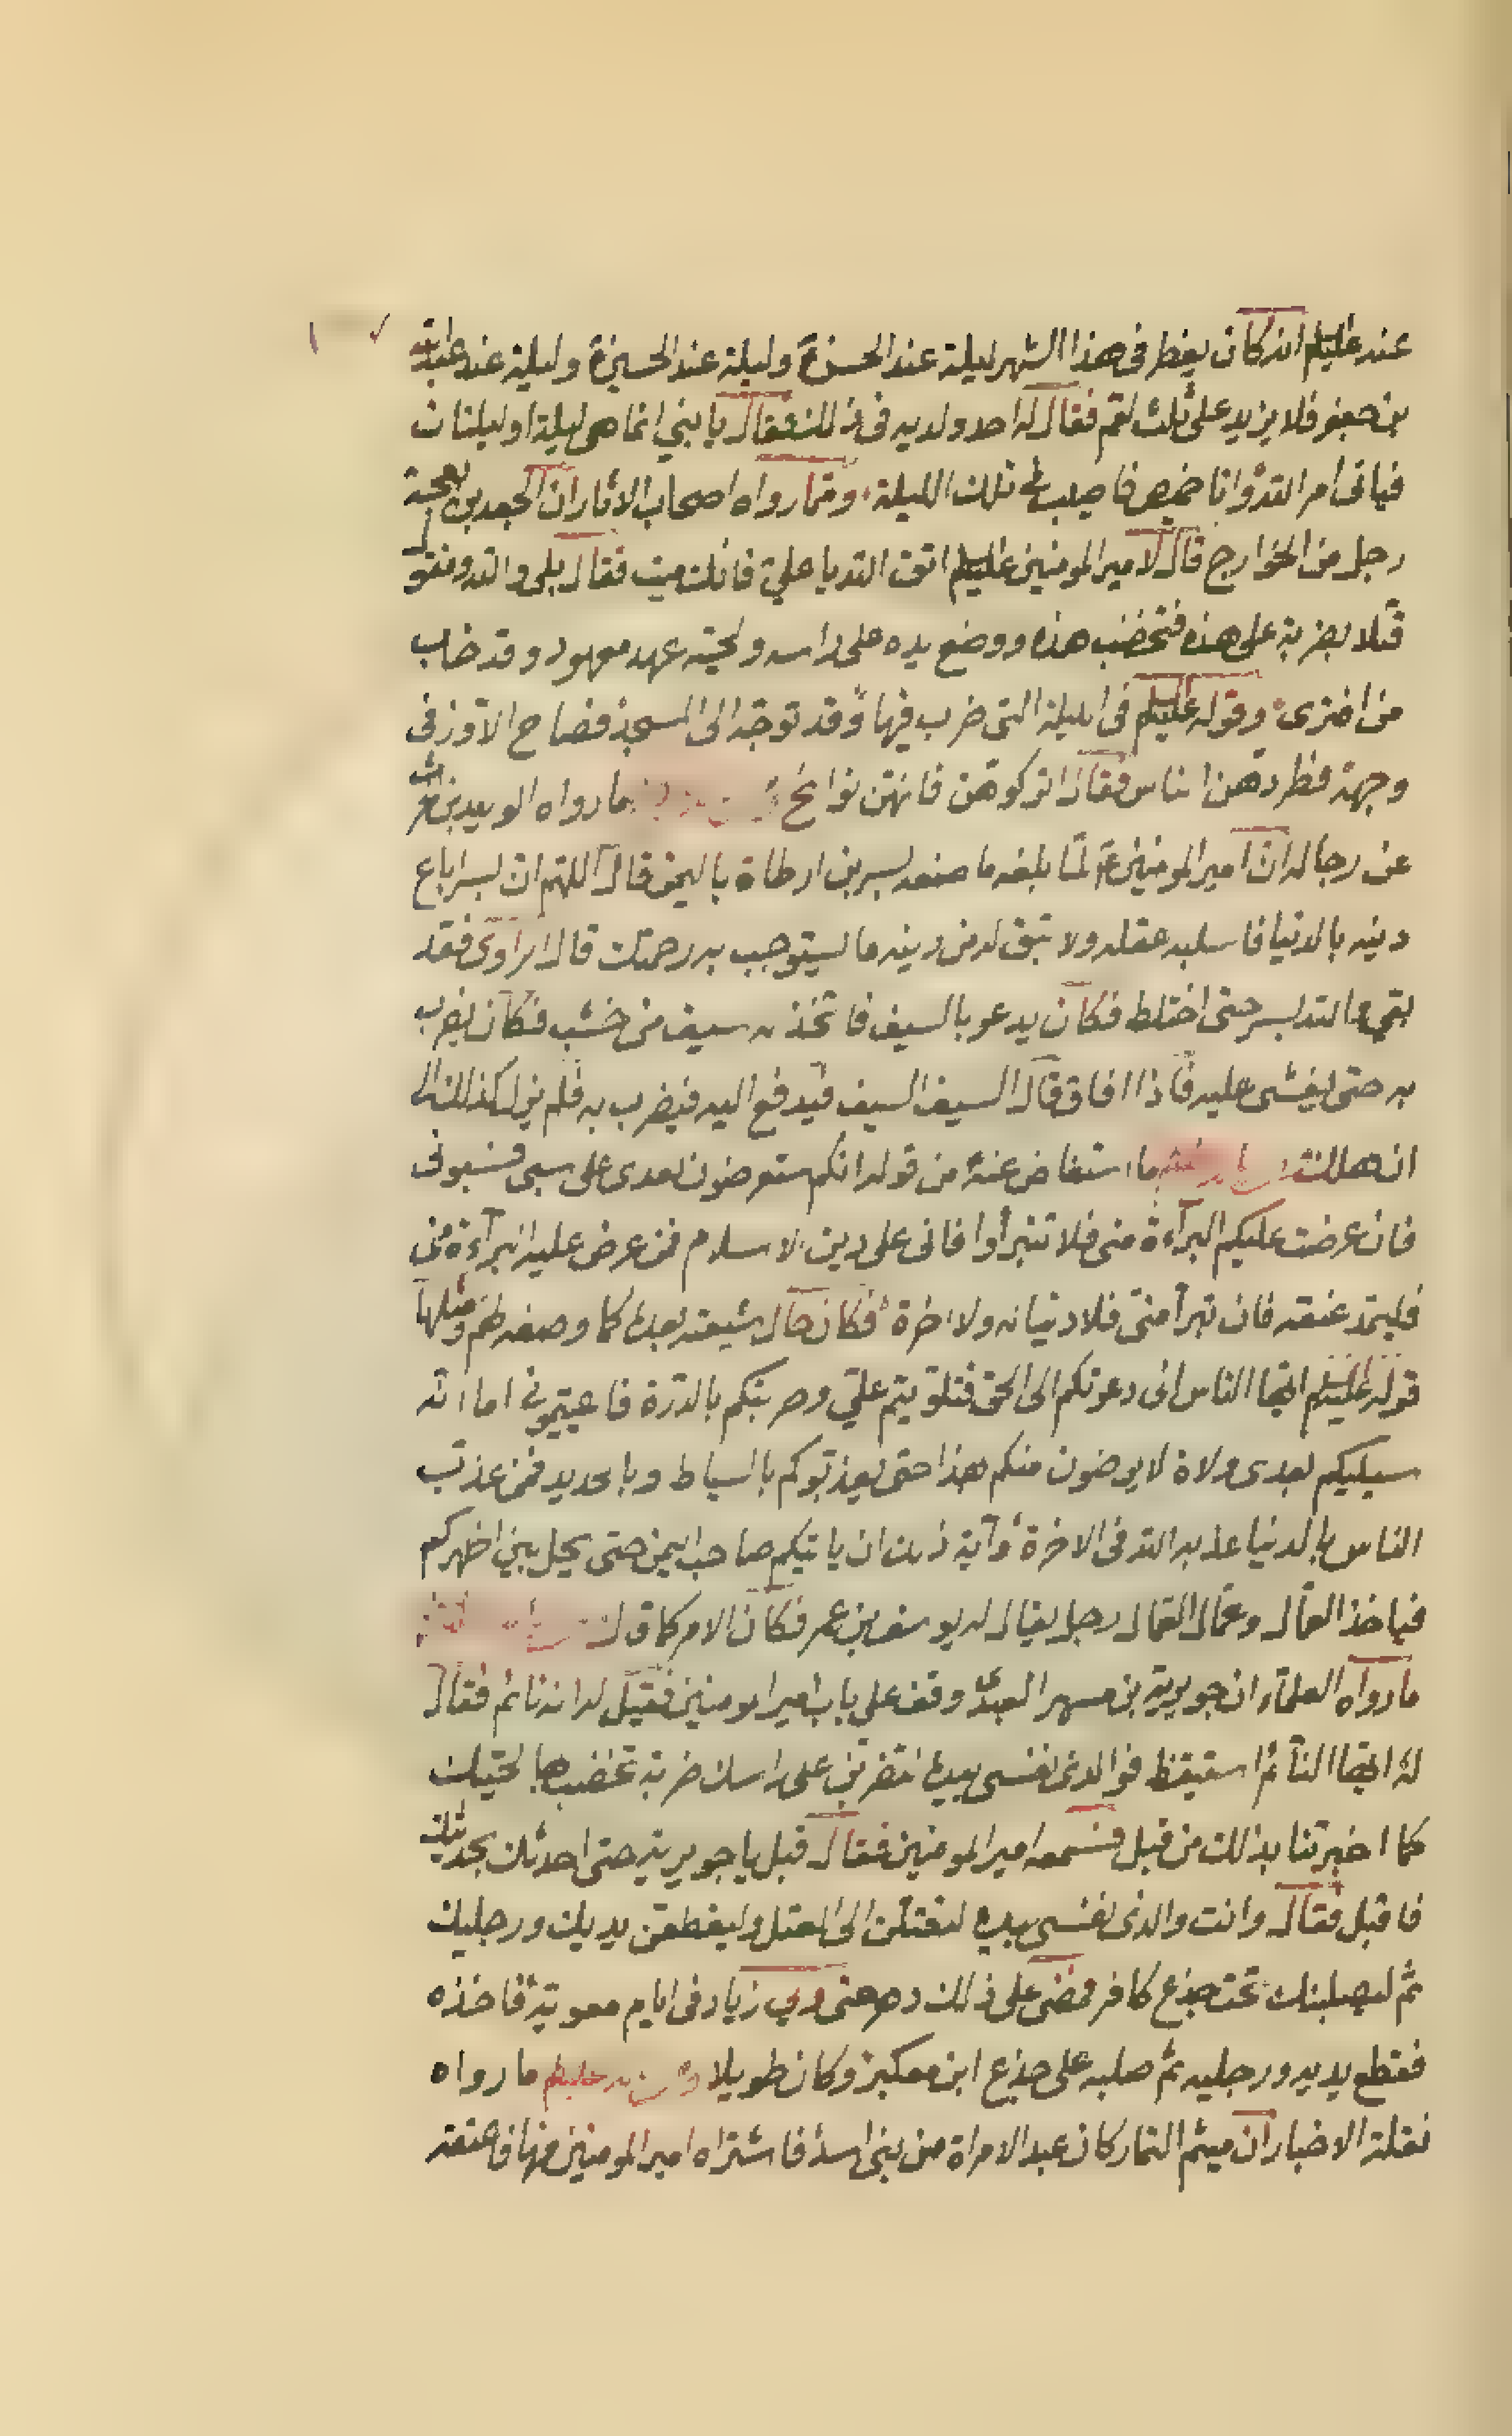 عنه عليلم انه كان يفطر فى هذا الشهر ليلة عند الحسن ع وليلة عند الحسين ع وليلة عند عبد الله
بن جعفر فلا يزيد على ثلث لقم فقال له احد ولديه فى ذلك فقال يا بنى انما هى ليلة او ليلتان
فياتى امر الله وانا خميص فاصيب فى تلك الليلة ومما رواه اصحاب الاثار ان الجعد بن بعجة
رجل من الخوارج قال لامير المومنين عليلم اتق الله يا على فانك ميت فقال بلى والله ومقتو
قتلا بضربة على هذه فتخضب هذه ووضع يده على راسه ولحيته عهد معهود وقد خاب
من افترى وقوله عليلم فى الليلة التى ضرب فيها وقد توجه الى المسجد فصاح الاوز فى
وجهه فطردهن الناس فقال اتركوهن فانهن نوائح ما رواه الوليد بن
عن رجاله ان امير المومنين ع لما بلغه ما صنعه بسر بن ارطاة باليمن قال اللهم ان بسرا باع
دينه بالدنيا فاسلبه عقله ولا تبق له من دينه ما يستوجب به رحمتك قال الراوى فقد
بقى والله بسر حتى اختلط فكان يدعو بالسيف فاتخذ له سيف من خشب فكان يضرب
به حتى يغشى عليه فاذا افاق قال السيف السيف فيدفع اليه فيضرب به فلم يزل كذلك الى
ان هلك ما استفاض عنه من قوله انكم ستعرضون بعدى على سبى فسبونى
فان عرضت عليكم البرآءة منى فلا تتبرأوا فانى على دين الاسلام فمن عرض عليه البرآءة منى
فليمد عنقه فان تبرأ منى فلا دنيا له ولا اخرة فكان حال شيعته بعده كما وصفه لهم ومثلها
قوله عليلم ايها الناس انى دعوتكم الى الحق فتلويتم على وضربتكم بالدرة فاعييتمونى اما انه
سيليكم بعدى ولاة لا يرضون منكم هذا حتى يعذبوكم بالسياط وبالحديد فمن عذب
الناس بالدنيا عذبه الله فى الاخرة وآية ذلك ان ياتيكم صاحب اليمن حتى يحل بين اظهركم
فياخذ العمال وعمال العمال رجل يقال له يوسف بن عمر فكان الامر كما قال
ما رواه العلماء ان جويرية بن مسهر العبدى وقف على باب امير المومنين فقيل له انه نائم فقال
له ايها النآئم استيقظ فو الذى نفسى بيده لتضربن على راسك ضربة تخضب بها لحيتك
كما اخبرتنا بذلك من قبل فسمعه امير المومنين فقال اقبل يا جويرية حتى احدثك بحديثك
فاقبل فقال وانت والذى نفسى بيده لتعتلن الى العتل وليقطعن يديك ورجليك
ثم ليصلبنك تحت جذع كافر فمضى على ذلك دهر حتى ولى زياد فى ايام معوية فاخذه
فقطع يديه ورجليه ثم صلبه على جذع ابن معكبر وكان طويلا ما رواه
نقلة الاخبار ان ميثم التمار كان عبدا لامراة من بنى اسد فاشتراه امير المومنين منها فاعتقه